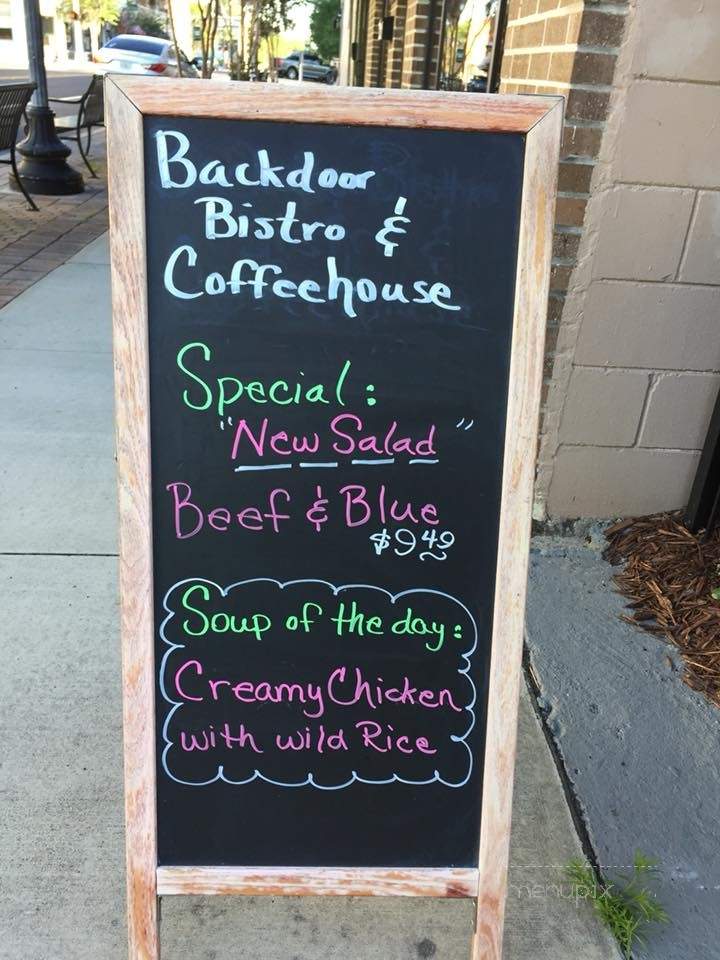 Backdoor
Bistro &
Coffeehouse
Special:
"New Salad"
Beef & Blue
$9.49
Soup of the day:
Creamy Chicken
with wild Rice
menupix